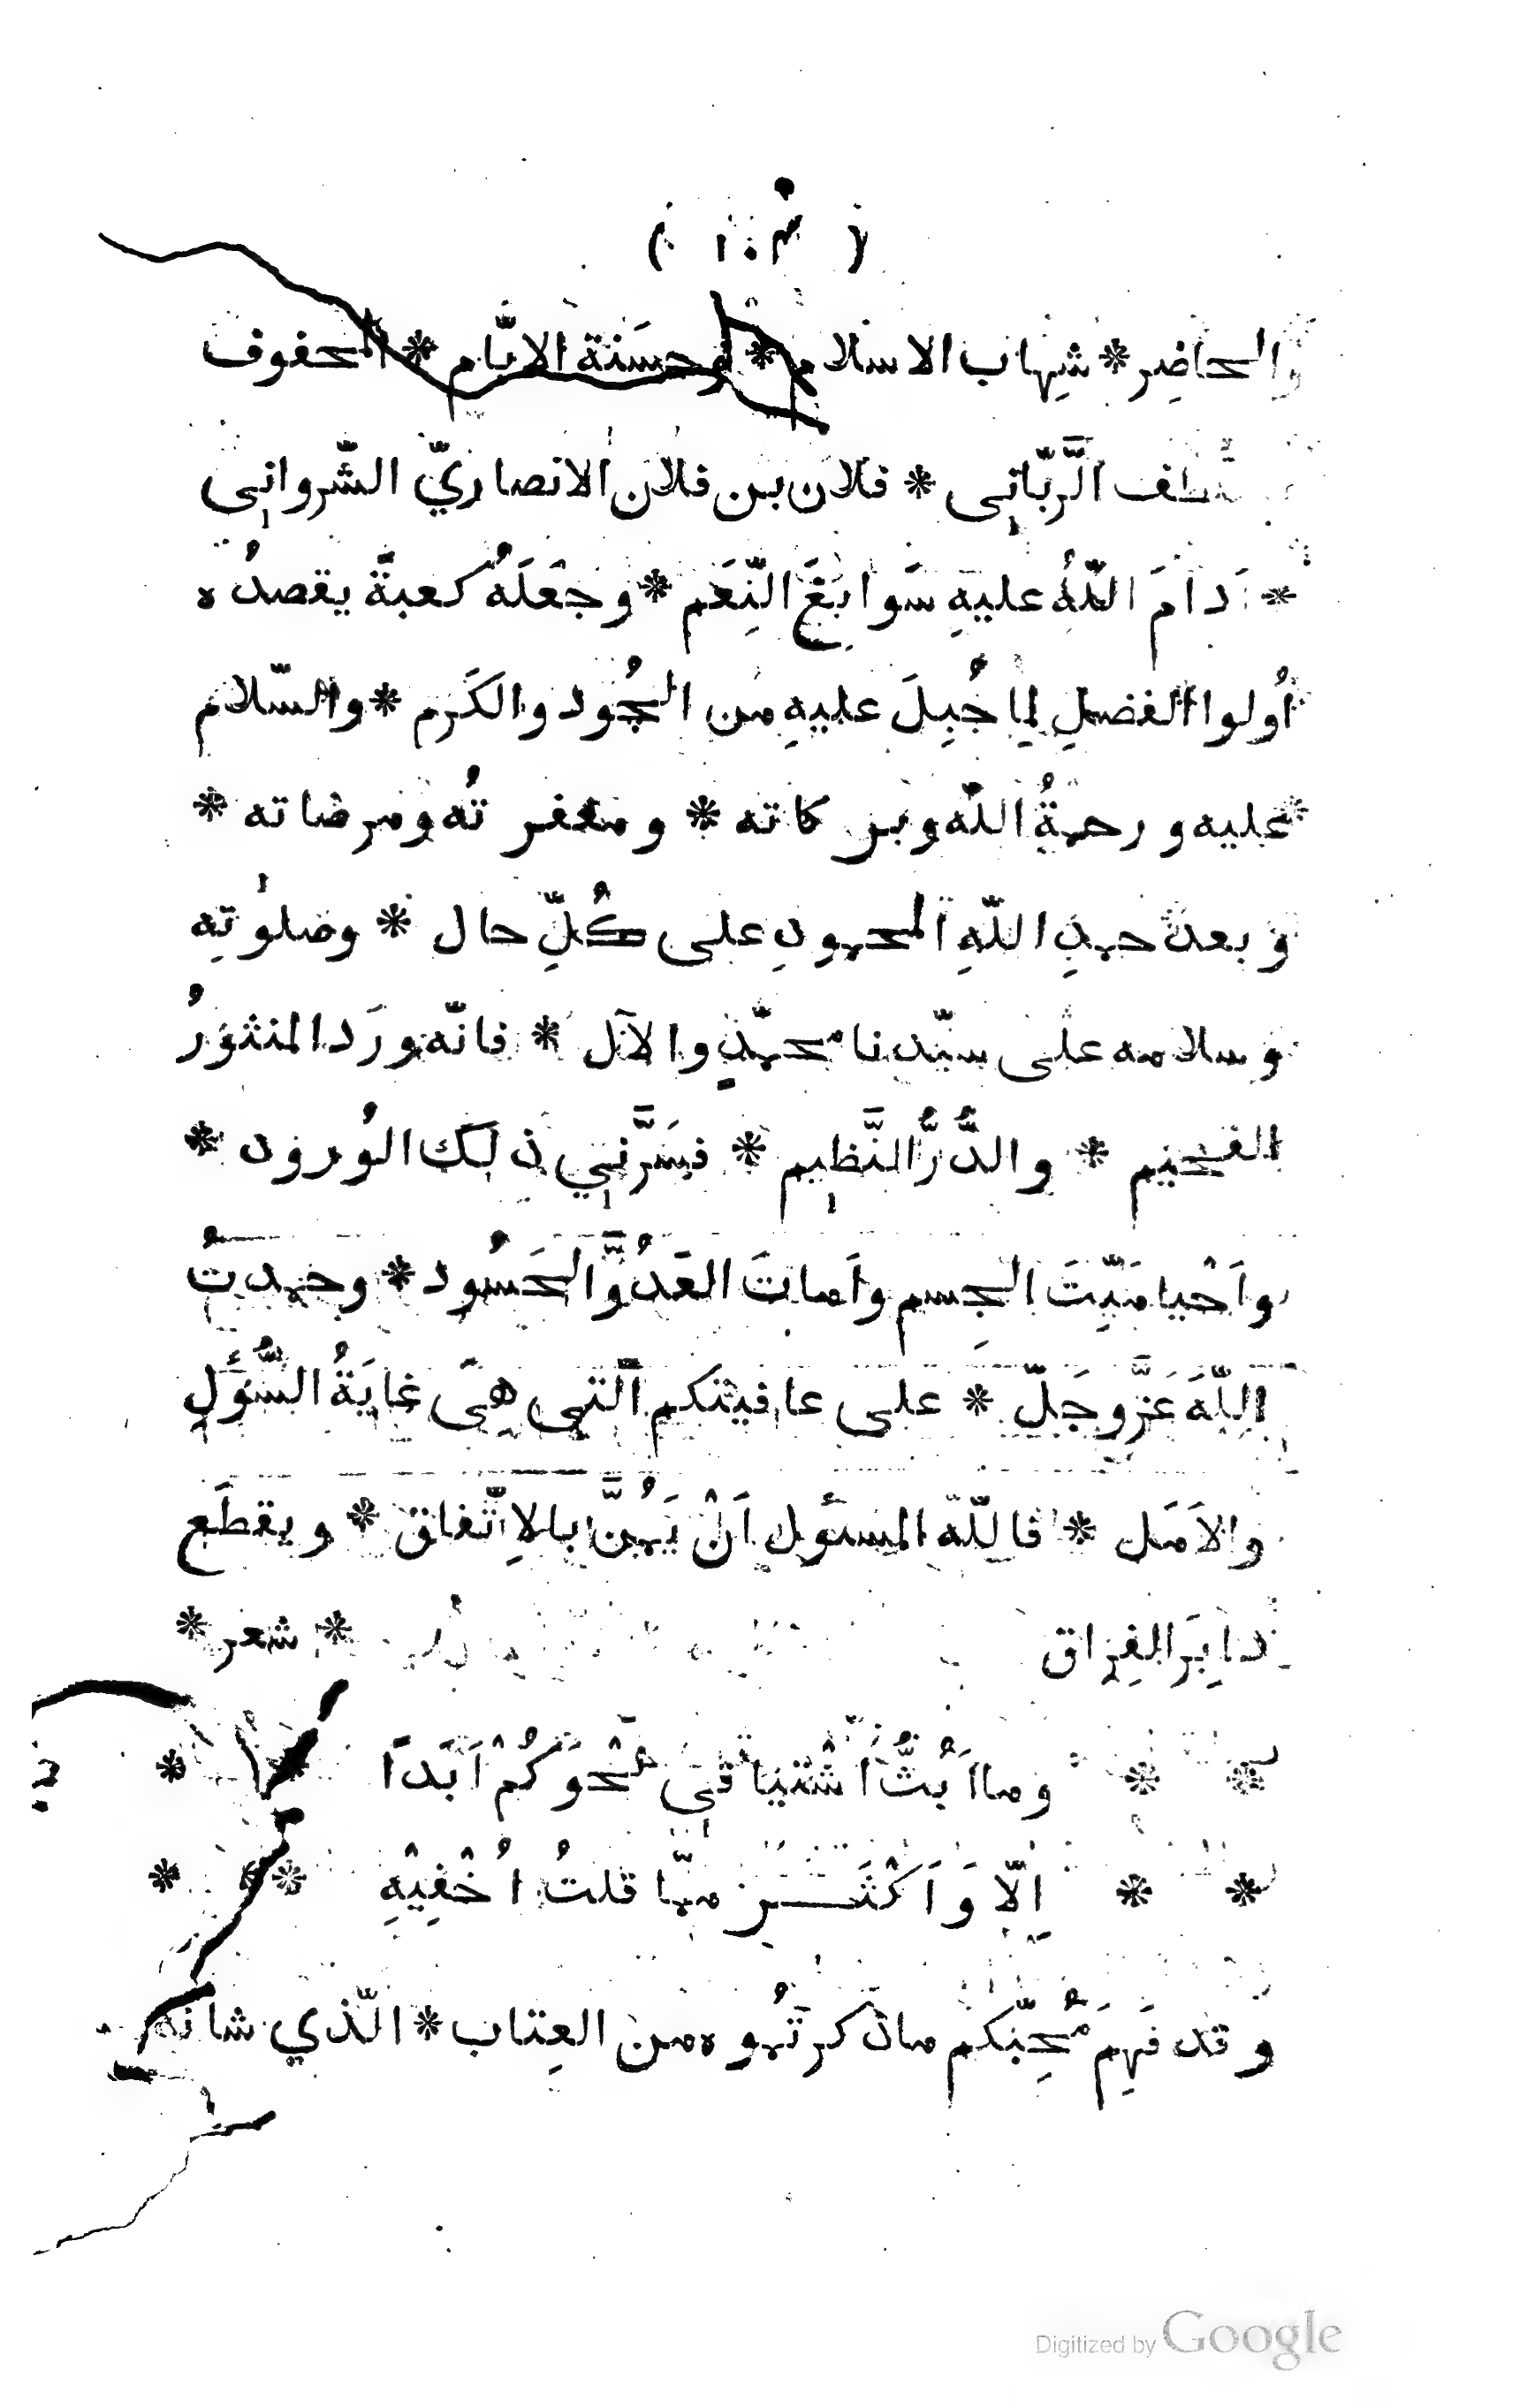 ( ١٠٣ )
والحاضر * شِهاب الاسلام * وحسَنة الايّام * المحفوف
الرَّبّاني * فلان بن فلان الانصاريّ الشّرواني
* اَدامَ اللّهُ عليهِ سَوابغَ النِّعَم * وجعَلَهُ كعبةً يقصدُه
اُولوا الفضلِ لِما جُبِلَ عليهِ من الجُود والكَرم * والسّلام
عليه ورحمةُ اللّه وبركاته * ومغفرتُه ومرضاته *
وبعد حمدِ اللّهِ المحمودِ على كُلِّ حال * وصلوٰتِه
وسلامه على سيّدنا محمّدٍ والآل * فانّه ورَد المنثورُ
الفخيم * والدُّرُّ النَّظيم * فسَرَّني ذلك الورود *
واَحْيا مَيِّتَ الجِسم واَماتَ العَدُوَّ الحَسُود * وحمدتُ
اللّهَ عَزَّ وجَلّ * على عافيتكم الّتي هِيَ غايَةُ السُّؤَلِ
والاَمَل * فاللّه المسئول اَنْ يَمُنَّ بالاِتّفاق * ويقطَع
دابِرَ الفِراق * شعر *
* * وما اَبُثُّ اشْتياقي نَحْوَكُمْ اَبَدًا * *
* * اِلّا وَاَكْثَـــر ممّا قلتُ اُخْفِيْهِ * *
وقد فَهِمَ مُحِبّكم ماذكرتُموه من العِتاب * الّذي شانه
Digitized by Google